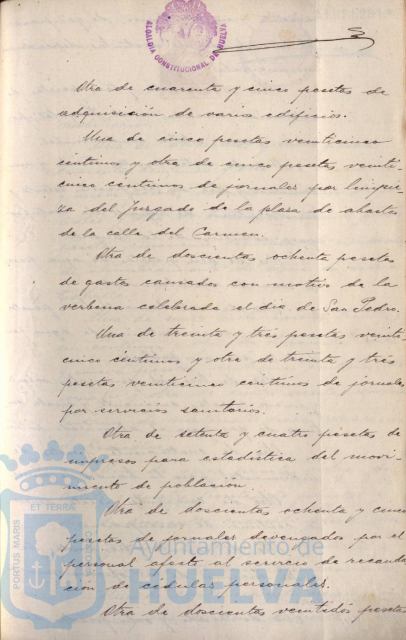 ALCALDIA CONSTITUCIONAL DE HUELVA
Otra de cuarenta y cinco pesetas de
adquisición de varios edificios.
Una de cinco pesetas veinticinco
céntimos y otra de cinco pesetas veinti-
cinco céntimos de jornales por limpie-
za del Juzgado de la plaza de abastos
de la calle del Carmen.
Otra de doscientas ochenta pesetas
de gastos causados con motivo de la
verbena celebrada el dia de San Pedro.
Una de treinta y tres pesetas veinti-
cinco céntimos y otra de treinta y tres
pesetas veinticinco centimos de jornales
por servicios sanitarios.
Otra de setenta y cuatro pesetas de
impresos para estadística del movi-
miento de población.
Otra de doscientas ochenta y cinco
pesetas de jornales devengados por el
personal afecto al servicio de recauda
cion de cédulas personales.
Otra de doscientas veintidos pesetas
PORTUS MARIS ET TERRÆ CUSTODIO
Ayuntamiento de
HUELVA